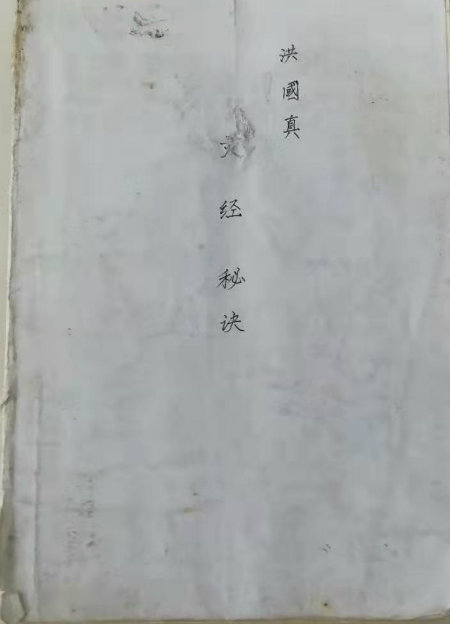 洪國真
经秘诀